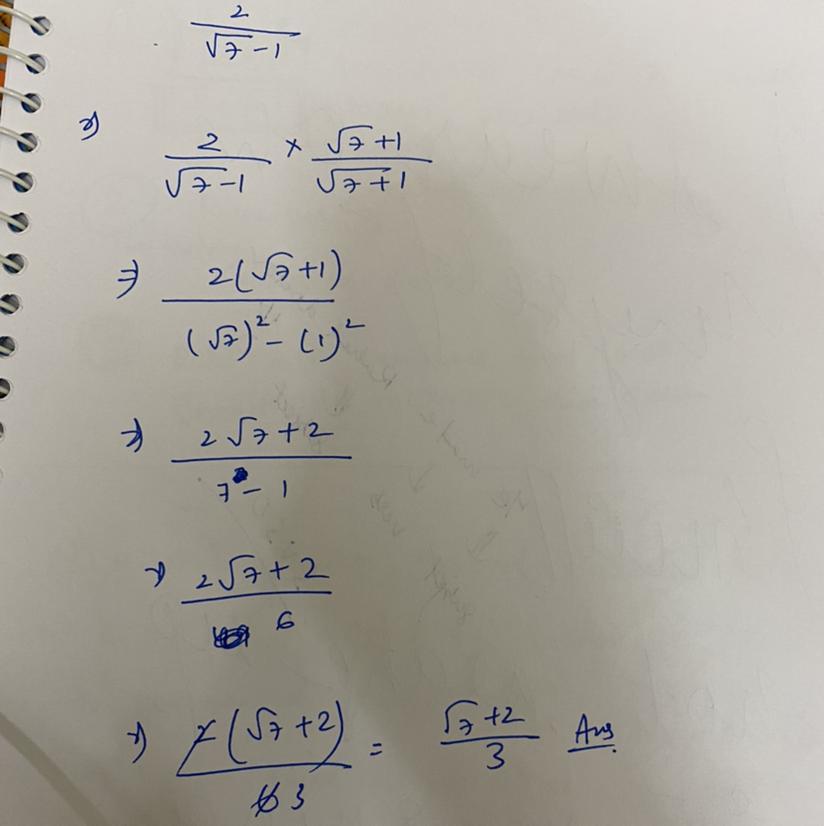 2/(√7-1)
⇒ 2/(√7-1) × (√7+1)/(√7+1)
⇒ 2(√7+1)/((√7)²-(1)²)
⇒ (2√7+2)/(7-1)
⇒ (2√7+2)/6
⇒ 2(√7+2)/6 3 = (√7+2)/3 Ans